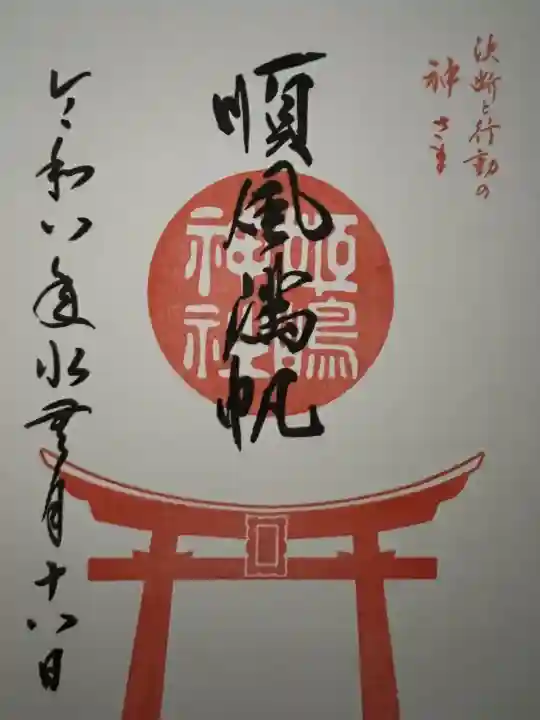 決断と行動の
神さま
順風満帆
姫嶋
神社
令和八年水無月十八日